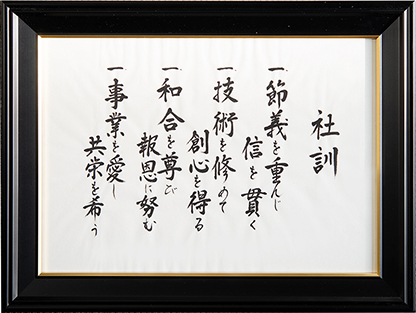 社訓
一、節義を重んじ
信を貫く
一、技術を修めて
創心を得る
一、和合を尊び
報恩に努む
一、事業を愛し
共栄を希う